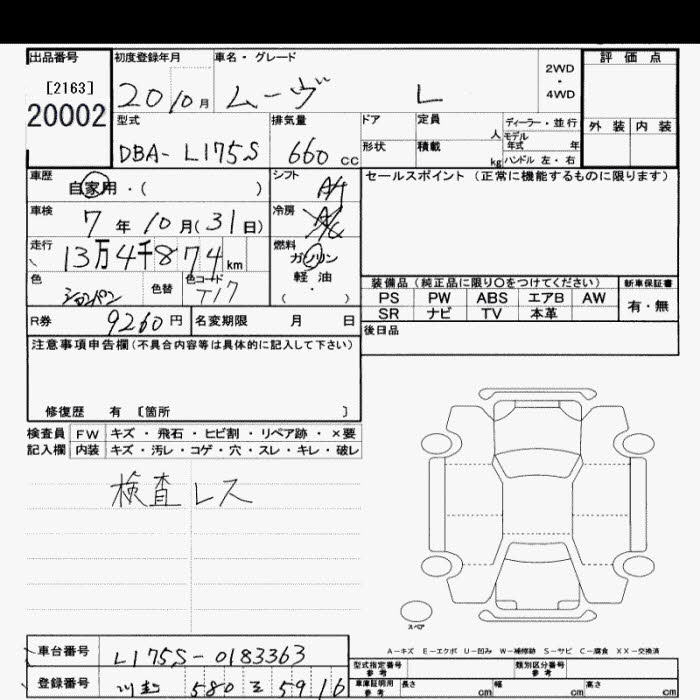 出品番号
[2163]
20002
初度登録年月
20 10月
車名・グレード
ムーヴ L
2WD
・
4WD
評価点
外装 内装
型式
DBA-L175S
排気量
660 cc
ドア
形状
定員
人
積載
kg
ディーラー・並行
モデル
年式 年
ハンドル 左・右
車歴
自家用・( )
シフト
車検
7年10月(31日)
冷房
走行
13万4千874km
燃料
ガソリン
軽油
( ・ )
色
シャンパン
色替
色コード
T17
R券
9260円
名変期限 月 日
セールスポイント (正常に機能するものに限ります)
装備品 (純正品に限り○をつけてください)
PS PW ABS エアB AW
SR ナビ TV 本革
新車保証書
有・無
後日品
注意事項申告欄(不具合内容等は具体的に記入して下さい)
修復歴 有 [箇所 ]
検査員 FW キズ・飛石・ヒビ割・リペア跡・×要
記入欄 内装 キズ・汚レ・コゲ・穴・スレ・キレ・破レ
検査レス
スペア
A-キズ E-エクボ U-凹み W-補修跡 S-サビ C-腐食 XX-交換済
車台番号
L175S-0183363
登録番号
580 5916
型式指定番号
参考
類別区分番号
参考
車庫証明用
参考
長さ cm 幅 cm 高さ cm